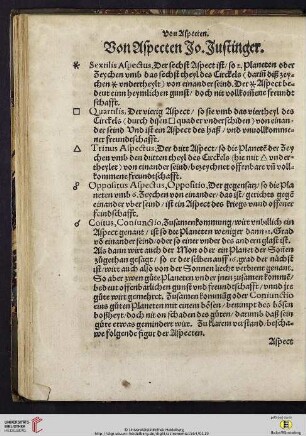 Von Aspecten.
Von Aspecten Jo. Justinger.
Sextilis Aspectus, Der sechst Aspect ist / so 2. Planeten oder
Zeychen vmb das sechst theyl des Circkels ( darin diß zey-
chen vndertheylt ) von einander seind. Der Aspect be-
deut eine heymlichen gunst / doch nit vollkomene freundt
schafft.
□ Quartilis. Der vierig Aspect / so sie vmb das viertheyl des
Circkels ( durch disen □ quader vnderschiden ) von einan-
der seind Vnd ist ein Aspect des haß / vnd vnuollkomme-
ner freundtschafft.
△ Trinus Aspectus, Der drit Aspect / so die Planetē der Zey-
chen vmb den dritten theyl des Circkels ( hie mit △ vnder-
theylet ) von einander seind / bezeychnet offenbare vñ voll-
kommene freundtschafft.
☍ Oppositus Aspectus, Oppositio, Der gegensatz / so die Pla
neten vmb 6. Zeychen von einander / das ist / gerichts gegē
einander vber seind / ist ein Aspect des kriegs vnnd offener
feindschafft.
☌ Coitus, Coniunctio, Zusamenkommung / wirt vnbillich ein
Aspect genant / ist so die Planeten weniger dann Grad
vō einander seind / oder so einer vnder des andern glast ist.
Als dann wirt auch der Mon oder ein Planet der Sonen
zůgethan gesagt / so er der selben auff 16. grad der nächst
ist / wirt auch also von der Sonnen liecht verborgen.
So aber zwen gůte Planeten vnder jnen zusamen komē /
bedeut offentbarlichen gunst vnd freundtschafft / vnnd jre
gůte wirt gemehret. Zusamen komūg oder Coniunctio
eins gůten Planeten mit einem bösen / benimpt des bösen
boßheyt / doch nit on schaden des gůten / darumb daß sein
gůte etwas gemindert wirt. Zu klarem verstand / bescha-
we folgende figur der Aspecten.
Aspect
UNIVERSITÄTS-
BIBLIOTHEK
HEIDELBERG
© Universitätsbibliothek Heidelberg